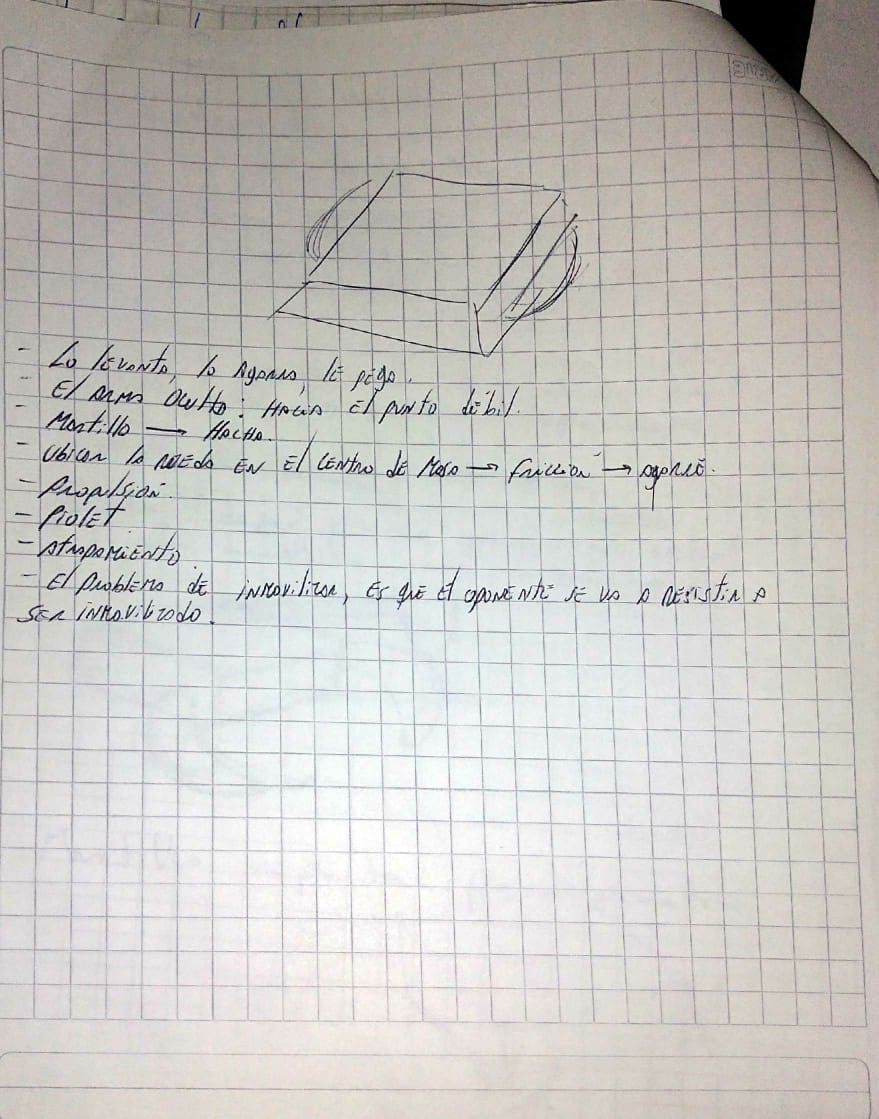 - Lo levanto, lo agarro, le pego.
- El arma oculta: Hacia el punto débil.
- Martillo → Hacha.
- Ubicar la rueda en el centro de masa → fricción → agarre.
- Propulsión.
- Piolet
- Atrapamiento
- El problema de inmovilizar, es que el oponente se va a resistir a
ser inmovilizado.